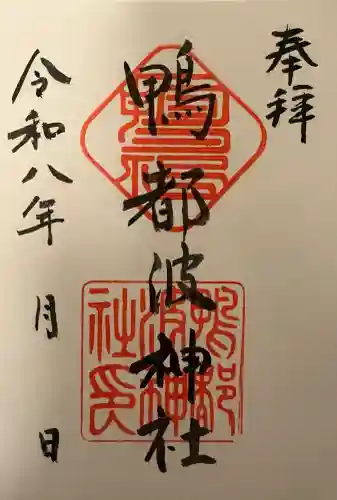 奉拝
鴨都波神社
令和八年 月 日
鴨都波神社印